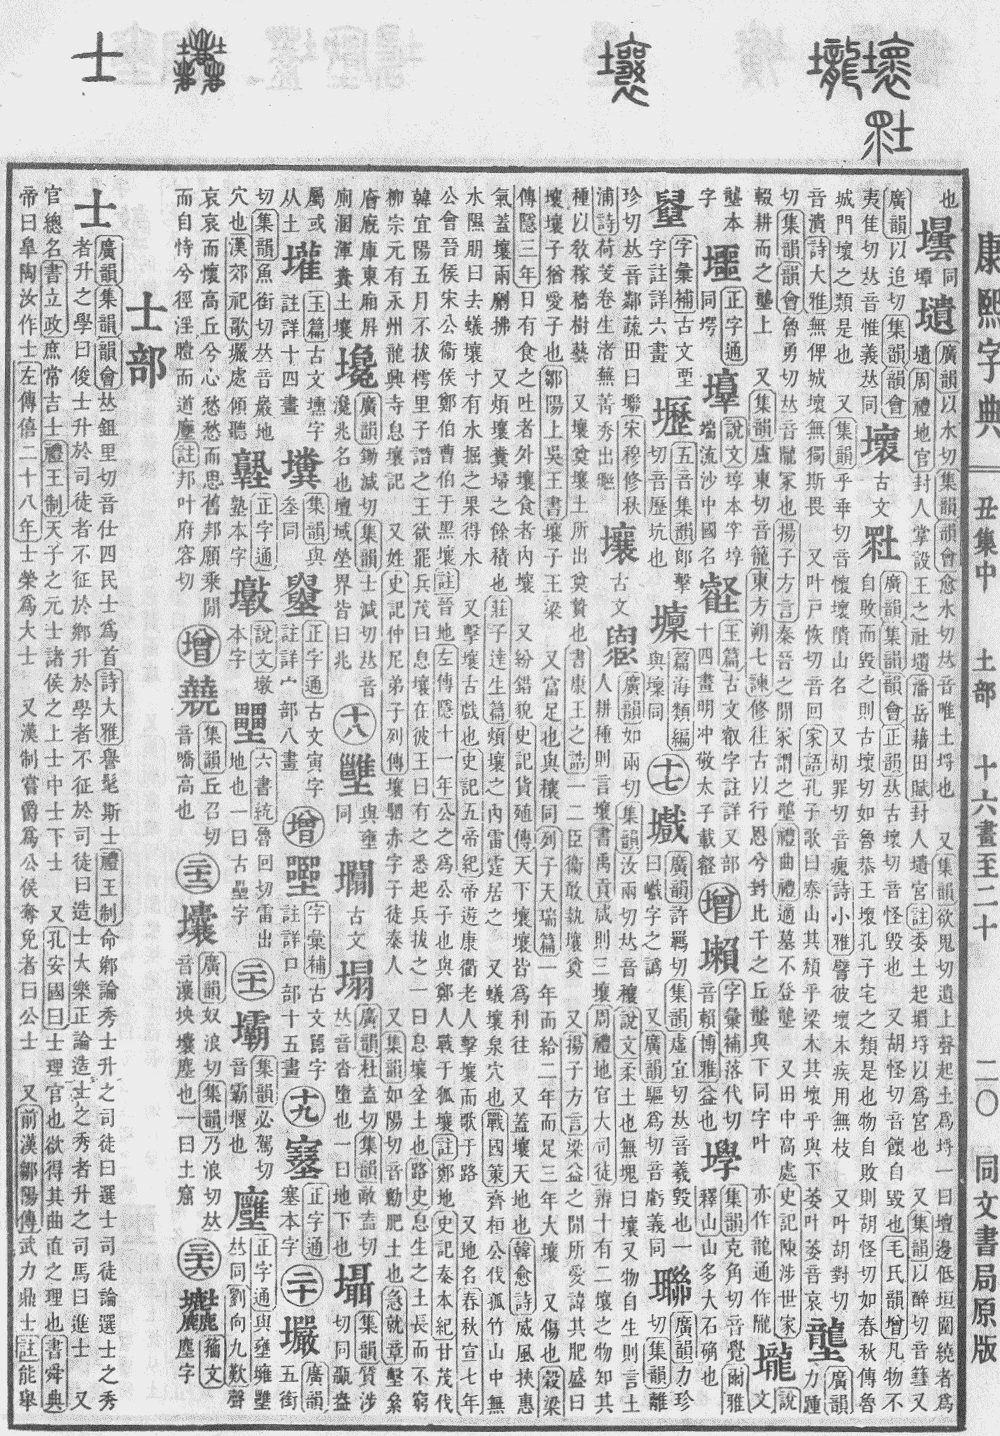 康熙字典 丑集中 土部 十六畫至二十 一二〇 同文書局原版
也
壜
同罈
壝
廣韻以水切集韻韻會愈水切𠀤音唯土埒也 又集韻欲鬼切遺上聲起土爲埒一曰壇邊低垣圍繞者爲
壝周禮地官封人掌設王之社壝潘岳藉田賦封人壝宮註委土起堳埒以爲宮也 又集韻以醉切音彗又
廣韻以追切集韻韻會
夷隹切𠀤音惟義𠀤同
壞
古文
𡊅
廣韻集韻韻會正韻𠀤古壞切音怪毀也 又胡怪切音 自毀也毛氏韻增凡物不
自敗而毀之則古壞切如魯恭王壞孔子宅之類是也物自敗則胡怪切如春秋傳魯
城門壞之類是也 又集韻乎乖切音懷壞隤山名 又胡罪切音瘣詩小雅譬彼壞木疾用無枝 又叶胡對切
音潰詩大雅無俾城壞無獨斯畏 又叶戶恢切音回家語孔子歌曰泰山其頹乎梁木其壞乎與下萎叶萎音哀
壟
廣韻力踵
切集韻韻會魯勇切𠀤音隴冢也揚子方言秦晉之閒冢謂之壟禮曲禮適墓不登壟 又田中高處史記陳涉世家
輟耕而之壟上 又集韻盧東切音龍東方朔七諫修往古以行恩兮封比干之丘壟與下同字叶 亦作龍通作隴
壠
說文
壟本
字
正字通
同堮
說文埻本字埻
端流沙中國名
壡
玉篇古文叡字註詳又部
十四畫明沖敬太子載壡
增
字彙補落代切
音賴博雅益也
壆
集韻克角切音覺爾雅
釋山山多大石礐也
字彙補古文堊
字註詳六畫
壢
五音集韻郎擊
切音歷坑也
篇海類編
與壈同
十七
壏
曰巇字之譌 又廣韻驅爲切音虧義同
廣韻力珍
切集韻離
珍切𠀤音鄰蔬田曰 宋穆修秋
浦詩荷芰卷生渚蕪菁秀出
壤
古文
廣韻如兩切集韻汝兩切𠀤音穰說文柔土也無塊曰壤又物自生則言土
人耕種則言壤書禹貢咸則三壤周禮地官大司徒辨十有二壤之物知其
種以敎稼穡樹藝 又壤奠壤土所出奠贄也書康王之誥一二臣衞敢執壤奠 又揚子方言梁益之閒所愛諱其肥盛曰
壤壤子猶愛子也鄒陽上吳王書壤子王梁 又富足也與穰同列子天瑞篇一年而給二年而足三年大壤 又傷也穀梁
傳隱三年日有食之吐者外壤食者內壤 又紛錯貌史記貨殖傳天下壤壤皆爲利往 又蓋壤天地也韓愈詩威風挾惠
氣蓋壤兩劘拂 又煩壤糞埽之餘積也莊子達生篇煩壤之內雷霆居之 又蟻壤泉穴也戰國策齊桓公伐孤竹山中無
水隰朋曰去蟻壤寸有水掘之果得水 又擊壤古戲也史記五帝紀帝遊康衢老人擊壤而歌于路 又地名春秋宣七年
公會晉侯宋公衞侯鄭伯曹伯于黑壤註晉地左傳隱十一年公之爲公子也與鄭人戰于狐壤註鄭地史記秦本紀甘茂伐
韓宜陽五月不拔樗里子譖之王欲罷兵茂曰息壤在彼王曰有之悉起兵拔之一曰息壤坌土也路史息生之土長而不窮
柳宗元有永州龍興寺息壤記 又姓史記仲尼弟子列傳壤駟赤字子徒秦人 又集韻如陽切音勷肥土也急就章墼絫
廥廐庫東廂屛
廁溷渾糞土壤
壥
廣韻鋤減切集韻士減切𠀤音
瀺兆名也壇域塋界皆曰兆
十八
與壅
同
壛
古文
塌
廣韻杜盍切集韻敵盍切
𠀤音沓墮也一曰地下也
集韻質涉
切同
屬或
从土
玉篇古文壎字
註詳十四畫
集韻與
坌同
正字通古文寅字
註詳宀部八畫
增
字彙補古文嚚字
註詳口部十五畫
十九
正字通
塞本字
二十
壧
廣韻
五銜
切集韻魚銜切𠀤音巖地
穴也漢郊祀歌壧處傾聽
正字通
塾本字
說文墩
本字
壨
六書統魯回切雷出
地也一曰古壘字
二十一
壩
集韻必駕切
音霸堰也
壅
正字通與壅雍壟
𠀤同劉向九歎聲
哀哀而懷高丘兮心愁愁而思舊邦願乘閒
而自恃兮徑淫曀而道壅註邦叶府容切
增
集韻丘召切
音嘺高也
二十二
廣韻奴浪切集韻乃浪切𠀤
音瀼坱壤塵也一曰土窟
籀文
塵字
士部
士
廣韻集韻韻會𠀤鉏里切音仕四民士爲首詩大雅譽髦斯士禮王制命鄕論秀士升之司徒曰選士司徒論選士之秀
者升之學曰俊士升於司徒者不征於鄕升於學者不征於司徒曰造士大樂正論造士之秀者升之司馬曰進士 又
官總名書立政庶常吉士禮王制天子之元士諸侯之上士中士下士 又孔安國曰士理官也欲得其曲直之理也書舜典
帝曰皐陶汝作士左傳僖二十八年士榮爲大士 又漢制嘗爵爲公侯奪免者曰公士 又前漢鄒陽傳武力鼎士註能舉